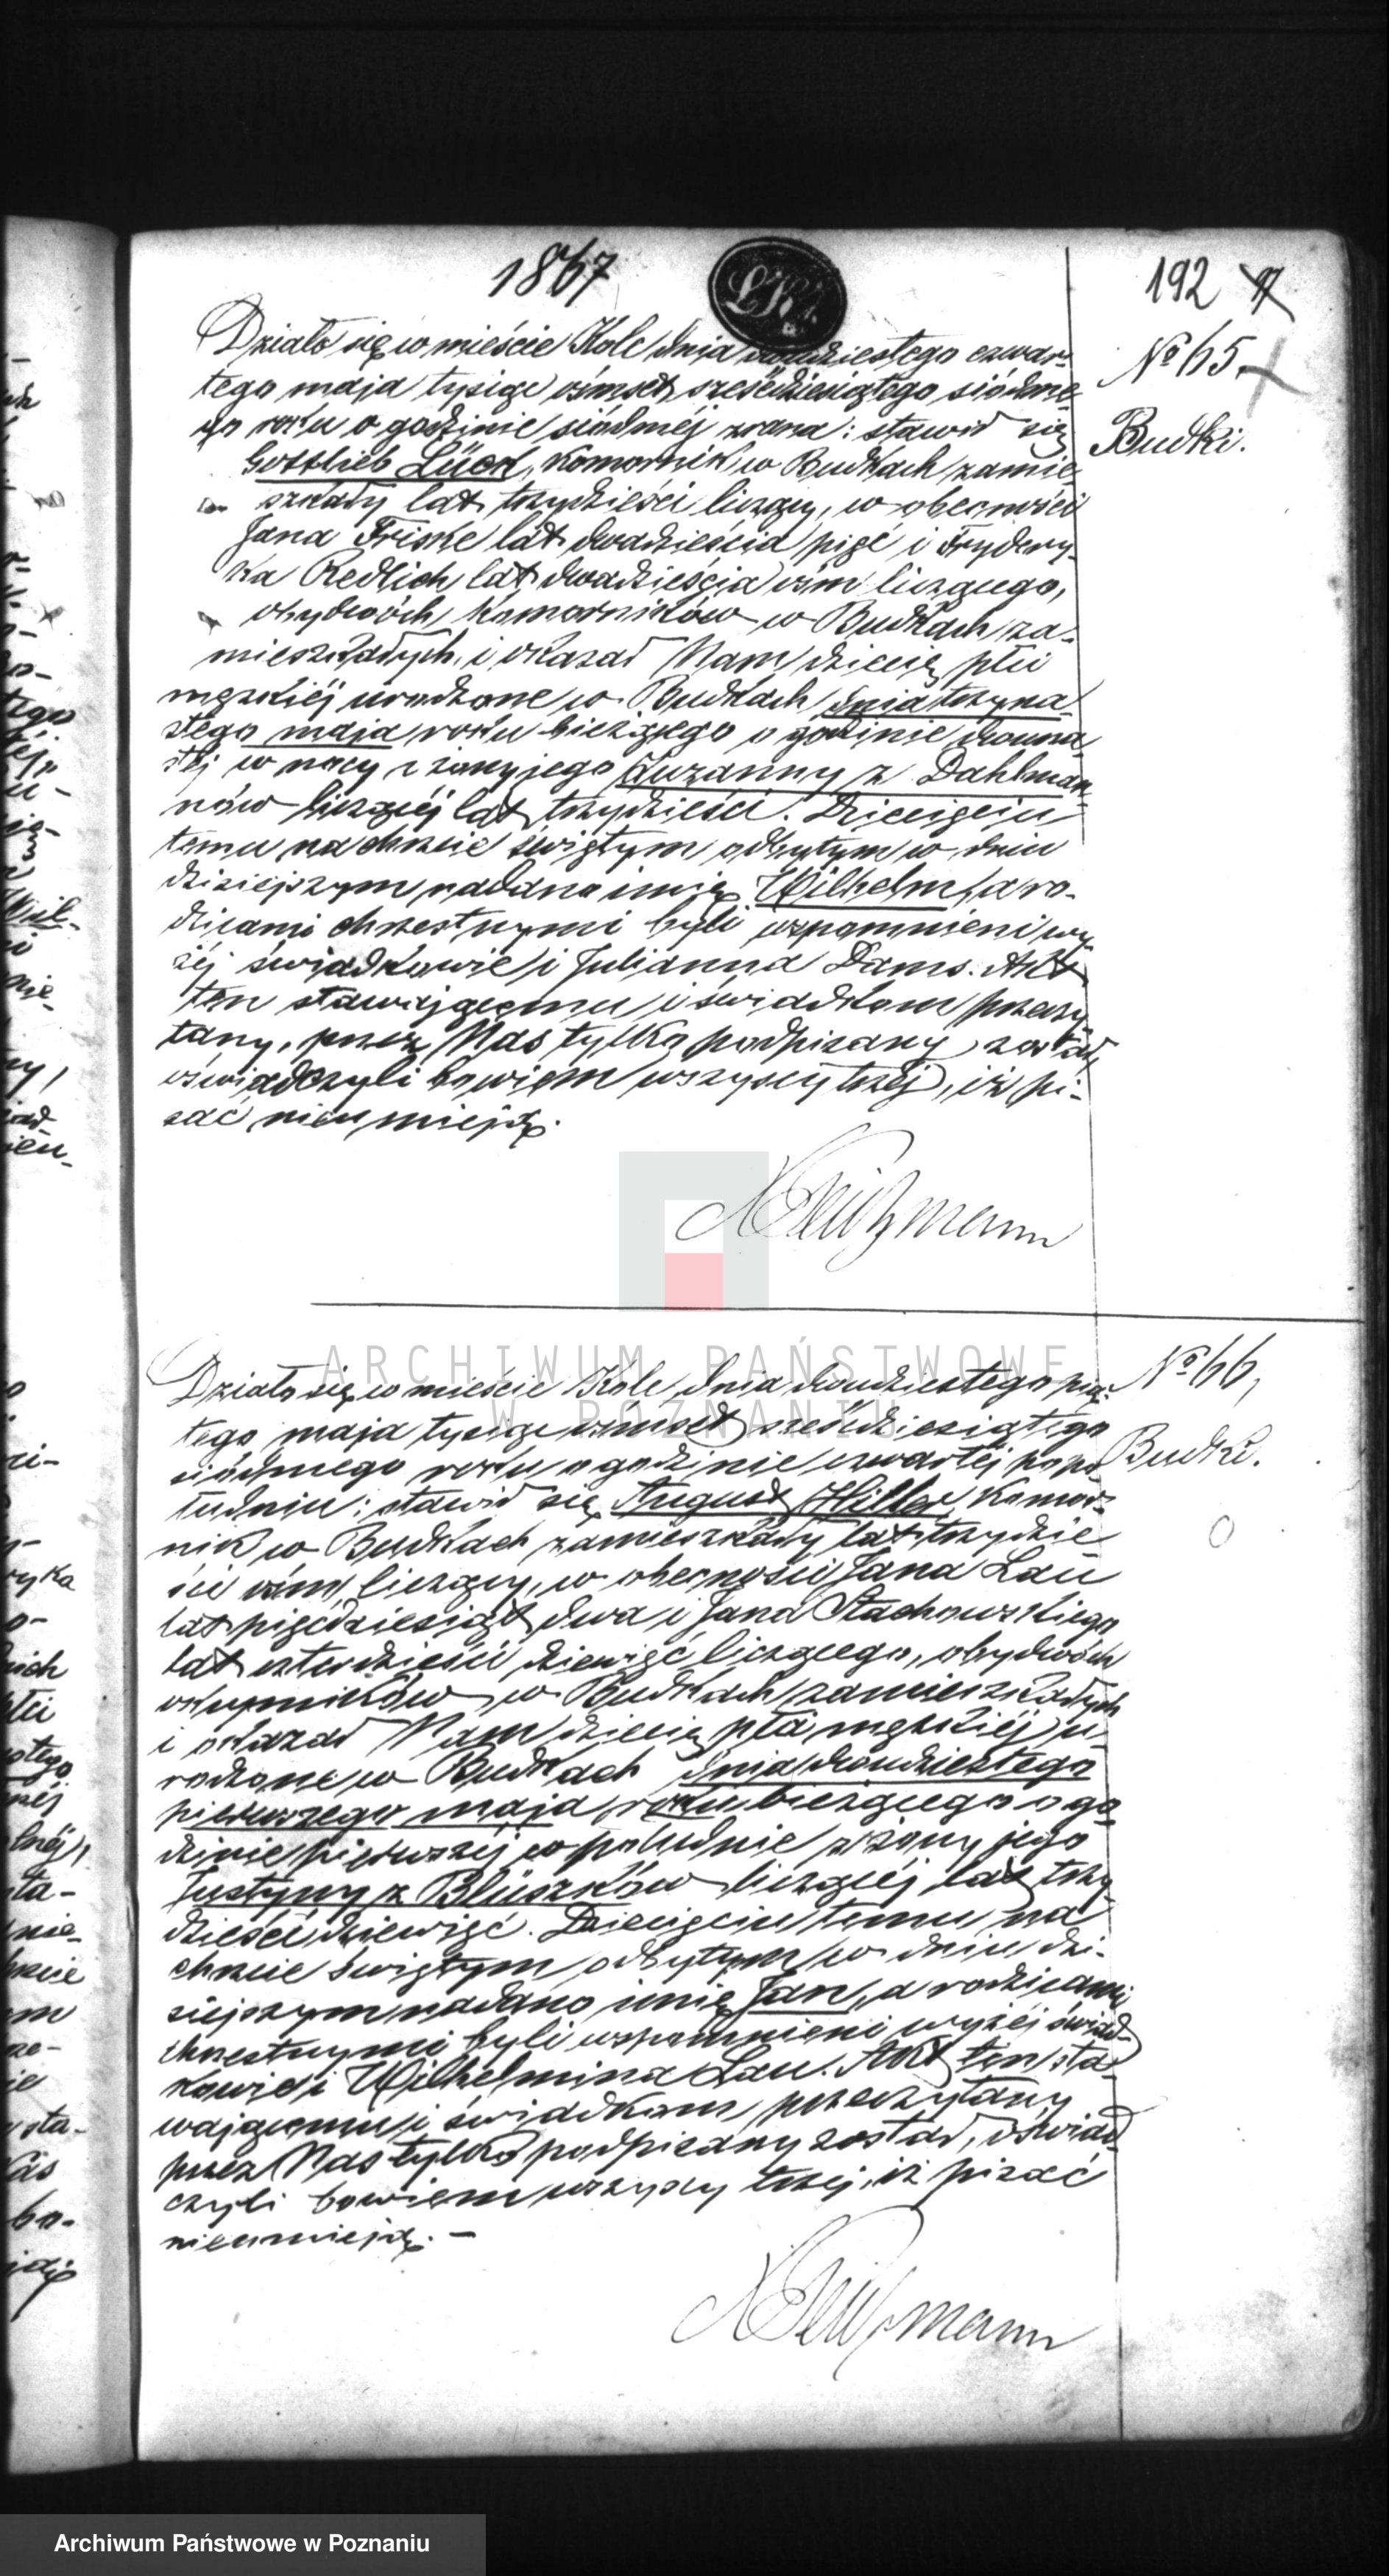 1867
192
Działo się w mieście Kole dnia dwudziestego czwar-
tego maja tysiąc ośmset sześćdziesiątego siódme-
go roku o godzinie siódmej zrana: stawił się
Gottlieb Lück, komornik w Budkach zamie-
szkały lat trzydzieści liczący, w obecności
Jana Friske lat dwadzieścia pięć i Frydery-
ka Redlich lat dwadzieścia ośm liczącego,
obydwóch komorników w Budkach za-
mieszkałych i okazał Nam dziecię płci
męzkiéj urodzone w Budkach dnia trzyna-
stego maja roku bieżącego o godzinie dwuna
stéj w nocy z żony jego Zuzanny z Dahlman-
nów liczącéj lat trzydzieści. Dziecięciu
temu na chrzcie świętym odbytym w dniu
dzisiejszym nadano imię Wilhelm, a ro-
dzicami chrzestnymi byli wspomnieni wy
żéj świadkowie i Julianna Dams. Akt
ten stawającemu i świadkom przeczy
tany, przez Nas tylko podpisany został,
oświadczyli bowiem wszyscy trzéj, iż pi-
sać nieumieją.
№ 65.
Budki.
Działo się w mieście Kole dnia dwudziestego pią-
tego maja tysiąc ośmset sześćdziesiątego
siódmego roku o godzinie czwartéj popo
łudniu: stawił się August Hiller, komor-
nik w Budkach zamieszkały lat trzydzie
ści ośm liczący, w obecności Jana Lau
lat pięćdziesiąt dwa i Jana Stachowskiego
lat czterdzieści dziewięć liczącego, obydwóch
okupników w Budkach zamieszkałych
i okazał Nam dziecię płci męzkiéj u-
rodzone w Budkach dnia dwudziestego
pierwszego maja roku bieżącego o go
dzinie pierwszéj w południe z żony jego
Justyny z Blüszków liczącéj lat trzy
dzieści dziewięć. Dziecięciu temu na
chrzcie świętym odbytym w dniu dzi-
siejszym nadano imię Jan, a rodzicami
chrzestnymi byli wspomnieni wyżéj świad-
kowie i Wilhelmina Lau. Akt ten sta-
wającemu i świadkom przeczytany
przez Nas tylko podpisany został, oświad-
czyli bowiem wszyscy trzéj, iż pisać
nieumieją. –
№ 66,
Budki.
ARCHIWUM PAŃSTWOWE
W POZNANIU
Archiwum Państwowe w Poznaniu